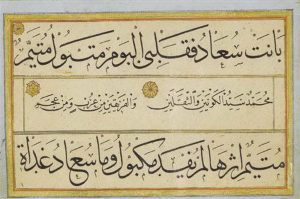 بانت سعاد فقلبي اليوم متبول متيم
محمد سيد الكونين والثقلين والفريقين من عرب ومن عجم
متيم إثرها لم يفد مكبول وما سعاد غداة